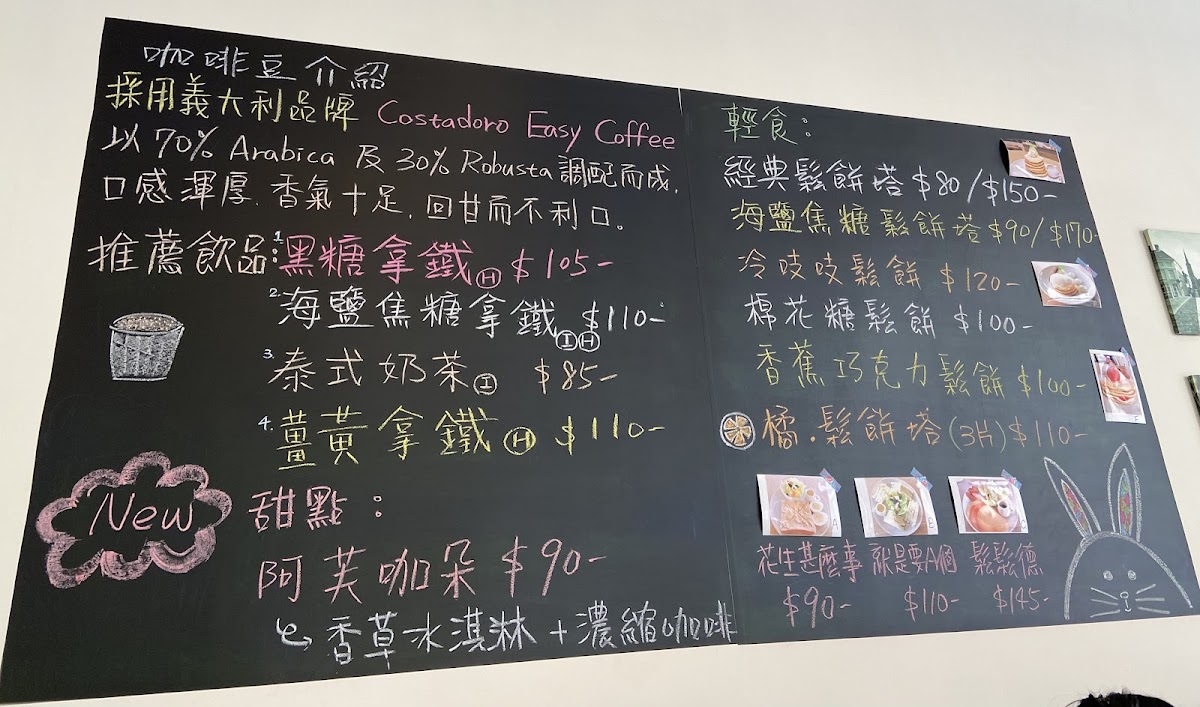 咖啡豆介紹
採用義大利品牌 Costadoro Easy Coffee
以70% Arabica 及30% Robusta調配而成,
口感渾厚,香氣十足,回甘而不利口。
推薦飲品:1.黑糖拿鐵Ⓗ $105-
2.海鹽焦糖拿鐵ⒾⒽ $110-
3.泰式奶茶Ⓘ $85-
4.薑黃拿鐵Ⓗ $110-
New
甜點:
阿芙咖朵 $90-
香草冰淇淋+濃縮咖啡
輕食:
經典鬆餅塔 $80/$150-
海鹽焦糖鬆餅塔 $90/$170-
冷吱吱鬆餅 $120-
棉花糖鬆餅 $100-
香蕉巧克力鬆餅 $100-
橘.鬆餅塔(3片)$110-
花生甚麼事 就是要A個 鬆鬆德
$90- $110- $145-